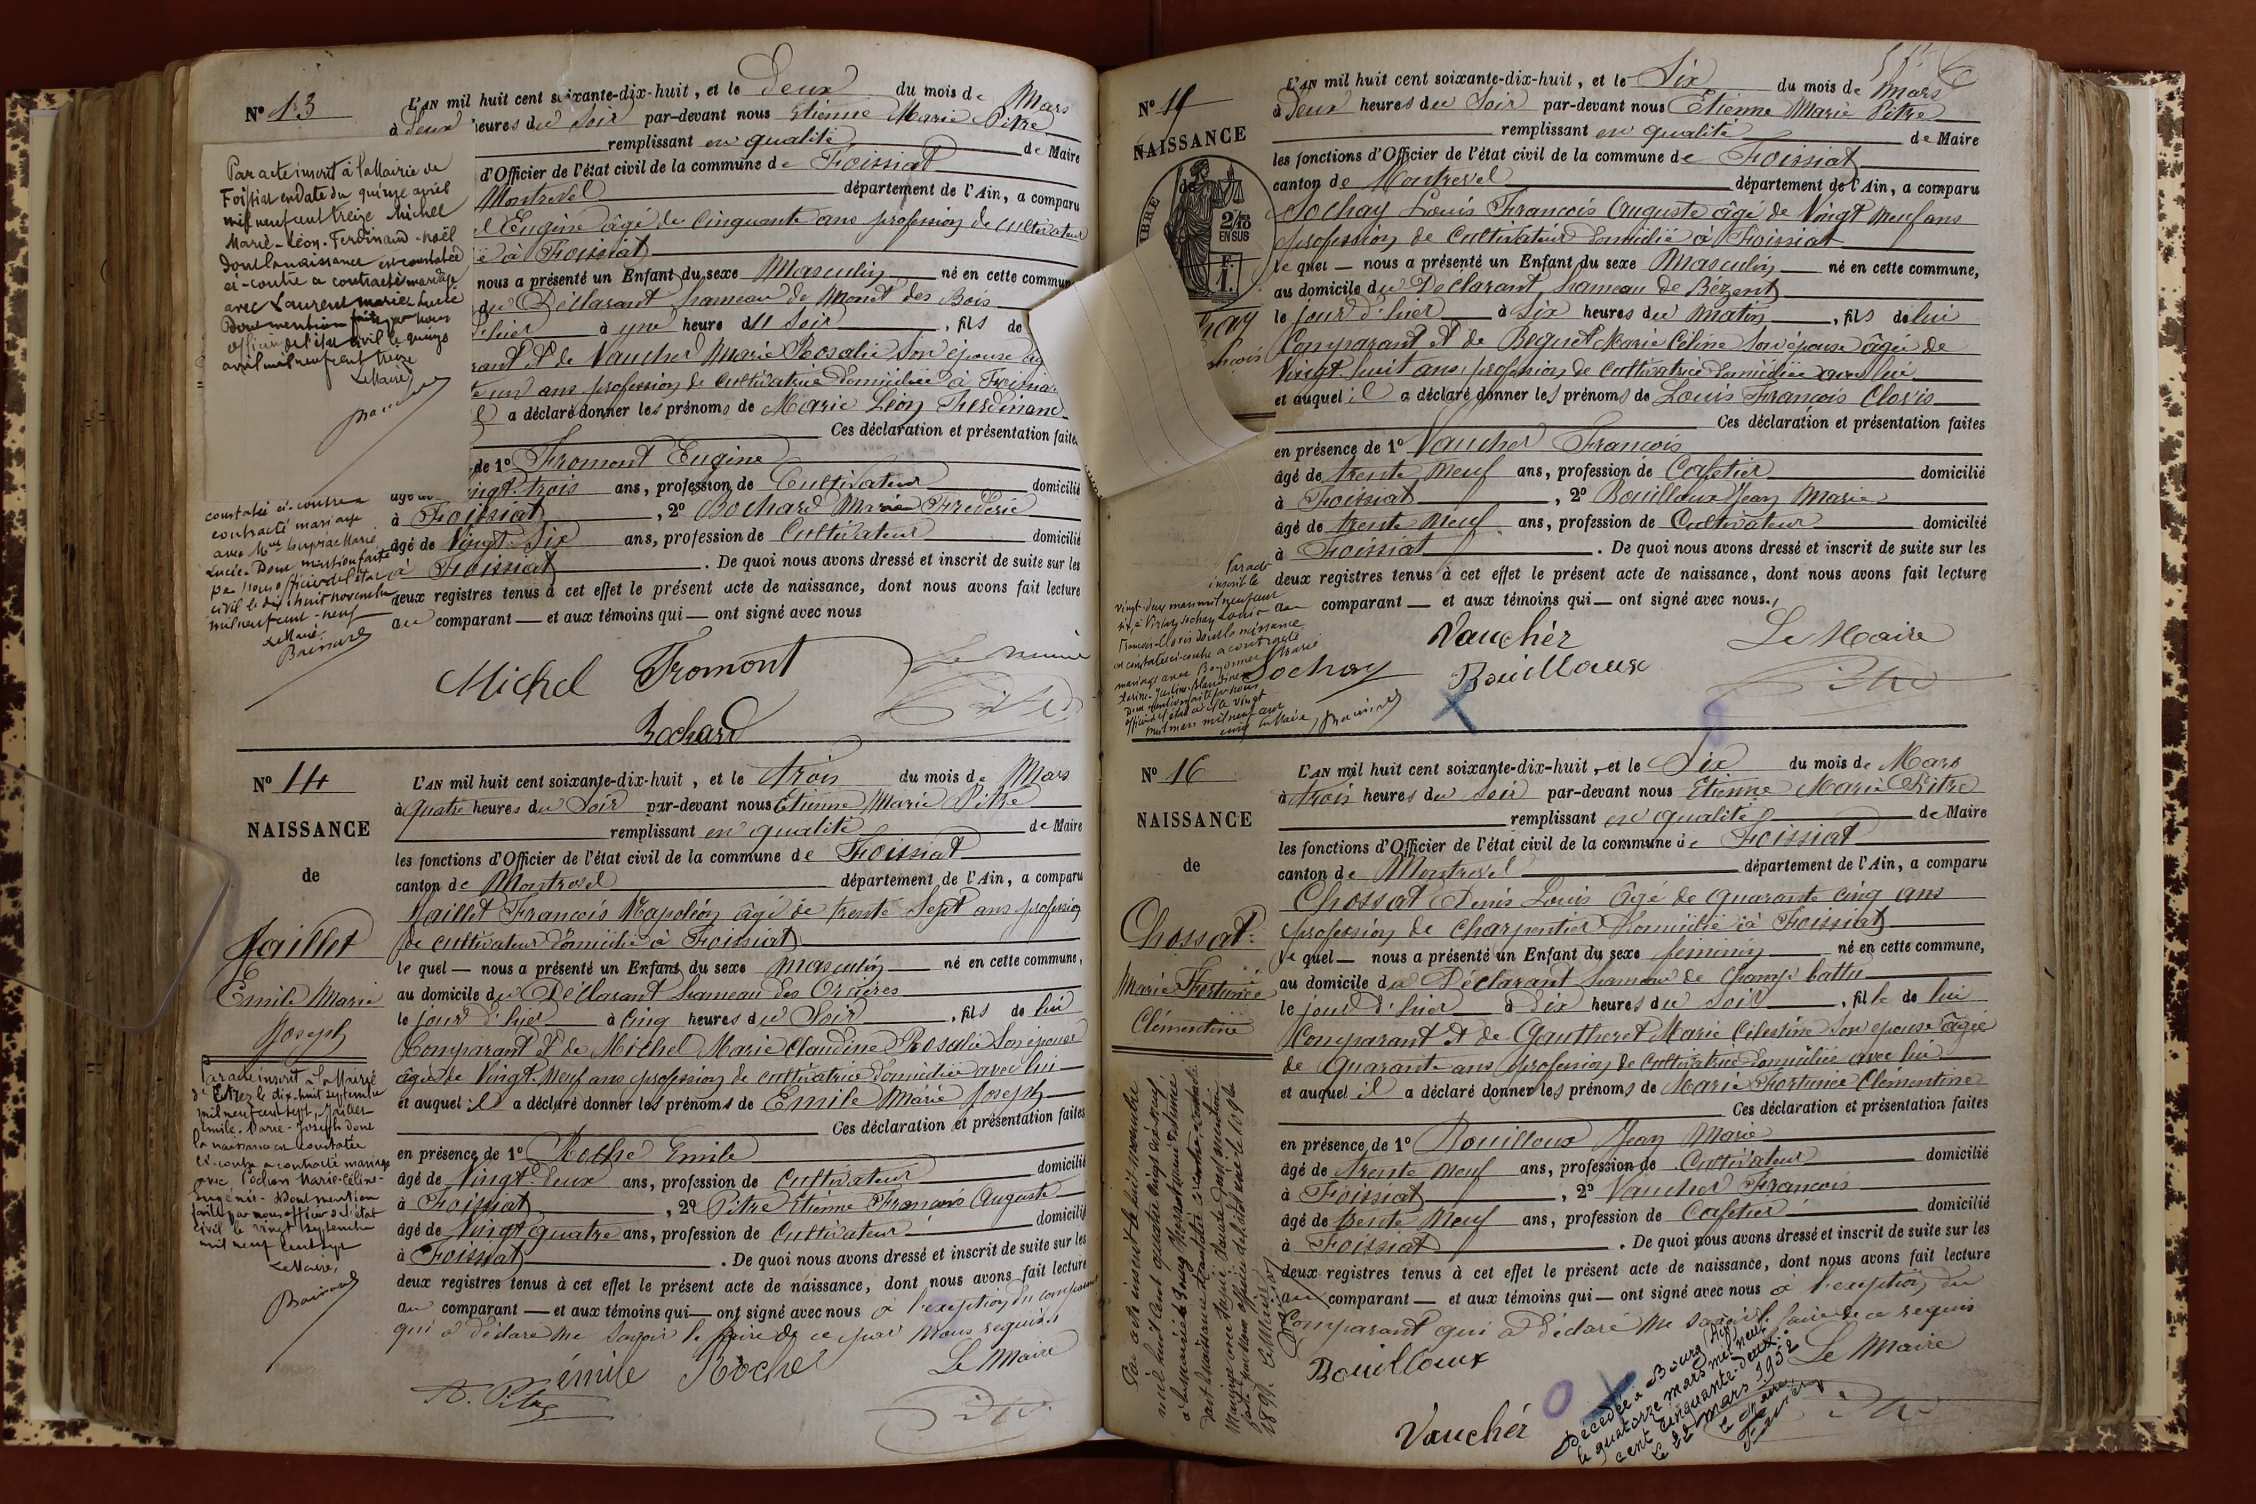 Nº 13
L'AN mil huit cent soixante-dix-huit, et le Deux du mois de Mars
à Deux heures du Soir par-devant nous Etienne Marie Pitre
remplissant en qualité de Maire
d'Officier de l'état civil de la commune de Foissiat
Montrevel département de l'Ain, a comparu
l Eugène âgé de Cinquante ans profession de cultivateur
é à Foissiat
nous a présenté un Enfant du sexe Masculin né en cette commune
du Déclarant hameau de Monet des Bois
d'hier à une heure du Soir, fils de
rant et de Vaucher Marie Rosalie Son épouse
te un ans profession de cultivatrice domiciliée à Foissiat
il a déclaré donner les prénoms de Marie Léon Ferdinand
Ces déclaration et présentation faites
de 1º Fromont Eugène
ingt trois ans, profession de Cultivateur domicilié
à Foissiat, 2º Bochard Marie Frédéric
âgé de Vingt Six ans, profession de Cultivateur domicilié
à Foissiat. De quoi nous avons dressé et inscrit de suite sur les
deux registres tenus à cet effet le présent acte de naissance, dont nous avons fait lecture
au comparant — et aux témoins qui — ont signé avec nous
Michel Fromont Le Maire
Bochard Pitre
Par acte inscrit à la Mairie de
Foissiat en date du quinze avril
mil neuf cent treize Michel
Marie-Léon-Ferdinand-Noël
dont la naissance est constatée
ci-contre a contracté mariage
avec Laurent Marie Lucie
Dont mention faite par nous
officier de l'état civil le quinze
avril mil neuf cent treize
Le Maire,
constatée ci-contre a
contracté mariage
avec Mme Marie
Lucie. Dont mention faite
par nous officier de l'état
civil le dix-huit novembre
mil neuf cent-neuf
Le Maire,
Nº 14
NAISSANCE
de
Jaillet
Emile Marie
Joseph
L'AN mil huit cent soixante-dix-huit, et le trois du mois de Mars
à quatre heures du Soir par-devant nous Etienne Marie Pitre
remplissant en qualité de Maire
les fonctions d'Officier de l'état civil de la commune de Foissiat
canton de Montrevel département de l'Ain, a comparu
Jaillet François Napoléon âgé de trente Sept ans profession
de cultivateur domicilié à Foissiat
le quel — nous a présenté un Enfant du sexe masculin né en cette commune,
au domicile du Déclarant hameau des Oraires
le jour d'hier à Cinq heures du Soir, fils de lui
Comparant et de Michel Marie Claudine Rosalie Son épouse
âgée de Vingt Neuf ans profession de cultivatrice domiciliée avec lui
et auquel il a déclaré donner les prénoms de Emile Marie Joseph
Ces déclaration et présentation faites
en présence de 1º Roche Emile
âgé de Vingt Deux ans, profession de cultivateur domicilié
à Foissiat, 2º Pitre Etienne François Auguste
âgé de Vingt quatre ans, profession de Cultivateur domicilié
à Foissiat. De quoi nous avons dressé et inscrit de suite sur les
deux registres tenus à cet effet le présent acte de naissance, dont nous avons fait lecture
au comparant — et aux témoins qui — ont signé avec nous à l'exception du comparant
qui a déclaré ne Savoir le faire de ce par Nous requis
émile Roche Le Maire
Pitre
Par acte inscrit à la Mairie
d'Etrez le dix-huit septembre
mil neuf cent sept, Jaillet
Emile-Marie-Joseph dont
la naissance est constatée
ci-contre a contracté mariage
avec Pochon Marie-Céline-
Eugénie. Dont mention
faite par nous officier de l'état
civil le vingt septembre
mil neuf cent sept
Le Maire,
Nº 15
NAISSANCE
de
2/10
EN SUS
L'AN mil huit cent soixante-dix-huit, et le Six du mois de Mars
à Deux heures du Soir par-devant nous Etienne Marie Pitre
remplissant en qualité de Maire
les fonctions d'Officier de l'état civil de la commune de Foissiat
canton de Montrevel département de l'Ain, a comparu
Sochay Louis François Auguste âgé de Vingt Neuf ans
profession de Cultivateur domicilié à Foissiat
le quel — nous a présenté un Enfant du sexe Masculin né en cette commune,
au domicile du Déclarant hameau de Bézent
le jour d'hier à Six heures du Matin, fils de lui
Comparant et de Béguet Marie Céline Son épouse âgée de
Vingt huit ans, profession de cultivatrice domiciliée avec lui
et auquel il a déclaré donner les prénoms de Louis François Clovis
Ces déclaration et présentation faites
en présence de 1º Vaucher François
âgé de trente Neuf ans, profession de Cafetier domicilié
à Foissiat, 2º Bouilloux Jean Marie
âgé de trente Neuf ans, profession de Cultivateur domicilié
à Foissiat. De quoi nous avons dressé et inscrit de suite sur les
deux registres tenus à cet effet le présent acte de naissance, dont nous avons fait lecture
au comparant — et aux témoins qui — ont signé avec nous.
Vauchér Le Maire
Sochay Bouilloux Pitre
Par acte
inscrit le
vingt-deux mars mil neuf cent
François-Clovis dont la naissance
est constatée ci-contre a contracté
mariage avec
Dont mention faite par nous
Nº 16
NAISSANCE
de
Chossat
Marie Fortunée
Clémentine
L'AN mil huit cent soixante-dix-huit, et le Six du mois de Mars
à trois heures du Soir par-devant nous Etienne Marie Pitre
remplissant en qualité de Maire
les fonctions d'Officier de l'état civil de la commune de Foissiat
canton de Montrevel département de l'Ain, a comparu
Chossat Denis Louis âgé de quarante cinq ans
profession de Charpentier domicilié à Foissiat
le quel — nous a présenté un Enfant du sexe féminin né en cette commune,
au domicile du Déclarant hameau de Champ battu
le jour d'hier à Dix heures du Soir, fille de lui
Comparant et de Gautheret Marie Célestine Son épouse âgée
de quarante ans profession de cultivatrice domiciliée avec lui
et auquel il a déclaré donner les prénoms de Marie Fortunée Clémentine
Ces déclaration et présentation faites
en présence de 1º Bouilloux Jean Marie
âgé de trente Neuf ans, profession de Cultivateur domicilié
à Foissiat, 2º Vaucher François
âgé de trente Neuf ans, profession de Cafetier domicilié
à Foissiat. De quoi nous avons dressé et inscrit de suite sur les
deux registres tenus à cet effet le présent acte de naissance, dont nous avons fait lecture
au comparant — et aux témoins qui — ont signé avec nous à l'exception du
Comparant qui a déclaré ne Savoir le faire de ce requis
Bouilloux Le Maire
Vauchér Pitre
Décédée à Bourg (Ain)
le quatorze mars mil neuf
cent cinquante-deux.
le 22 mars 1952
le maire